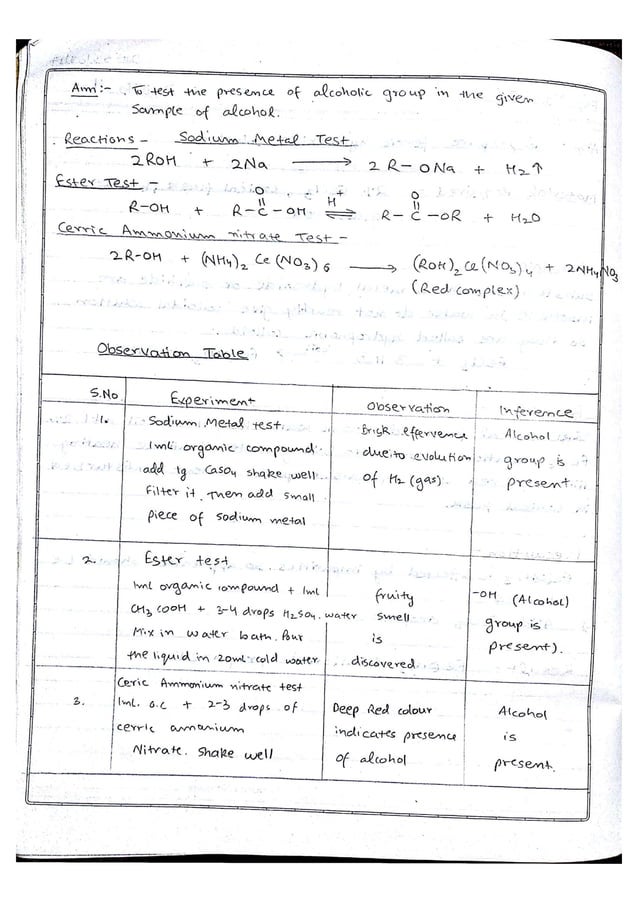 Aim:- To test the presence of alcoholic group in the given
Sample of alcohol.
Reactions - Sodium Metal Test
2ROH + 2Na ⟶ 2 R-ONa + H2↑
Ester Test -
R-OH + R-C(=O)-OH ⇌ (H+) R-C(=O)-OR + H2O
Cerric Ammonium nitrate Test -
2R-OH + (NH4)2 Ce(NO3)6 ⟶ (ROH)2Ce(NO3)4 + 2NH4NO3
(Red complex)
Observation Table
S.No Experiment Observation Inference
1. Sodium Metal test.
1mL organic compound
add 1g CaSO4 shake well
Filter it. Then add small
piece of sodium metal
Brisk effervence
due to evolution
of H2 (gas)
Alcohol
group is
present
2. Ester test
1ml organic compound + 1ml
CH3COOH + 3-4 drops H2SO4. water
Mix in water bath. Pour
the liquid in 20ml cold water
fruity
smell
is
discovered
-OH (Alcohol)
group is
present).
3. Ceric Ammonium nitrate test
1ml. o.c + 2-3 drops of
cerric amonium
Nitrate. Shake well
Deep Red colour
indicates presence
of alcohol
Alcohol
is
present.